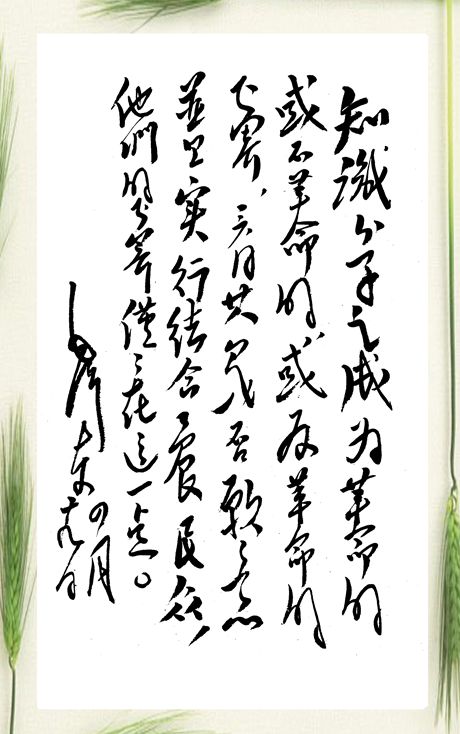 知識分子之成为革命的
或不革命的,或反革命的
分界,看其是否願意
並且实行结合工農民众,
他們的分界僅僅在這一点。
毛澤東
四月
日